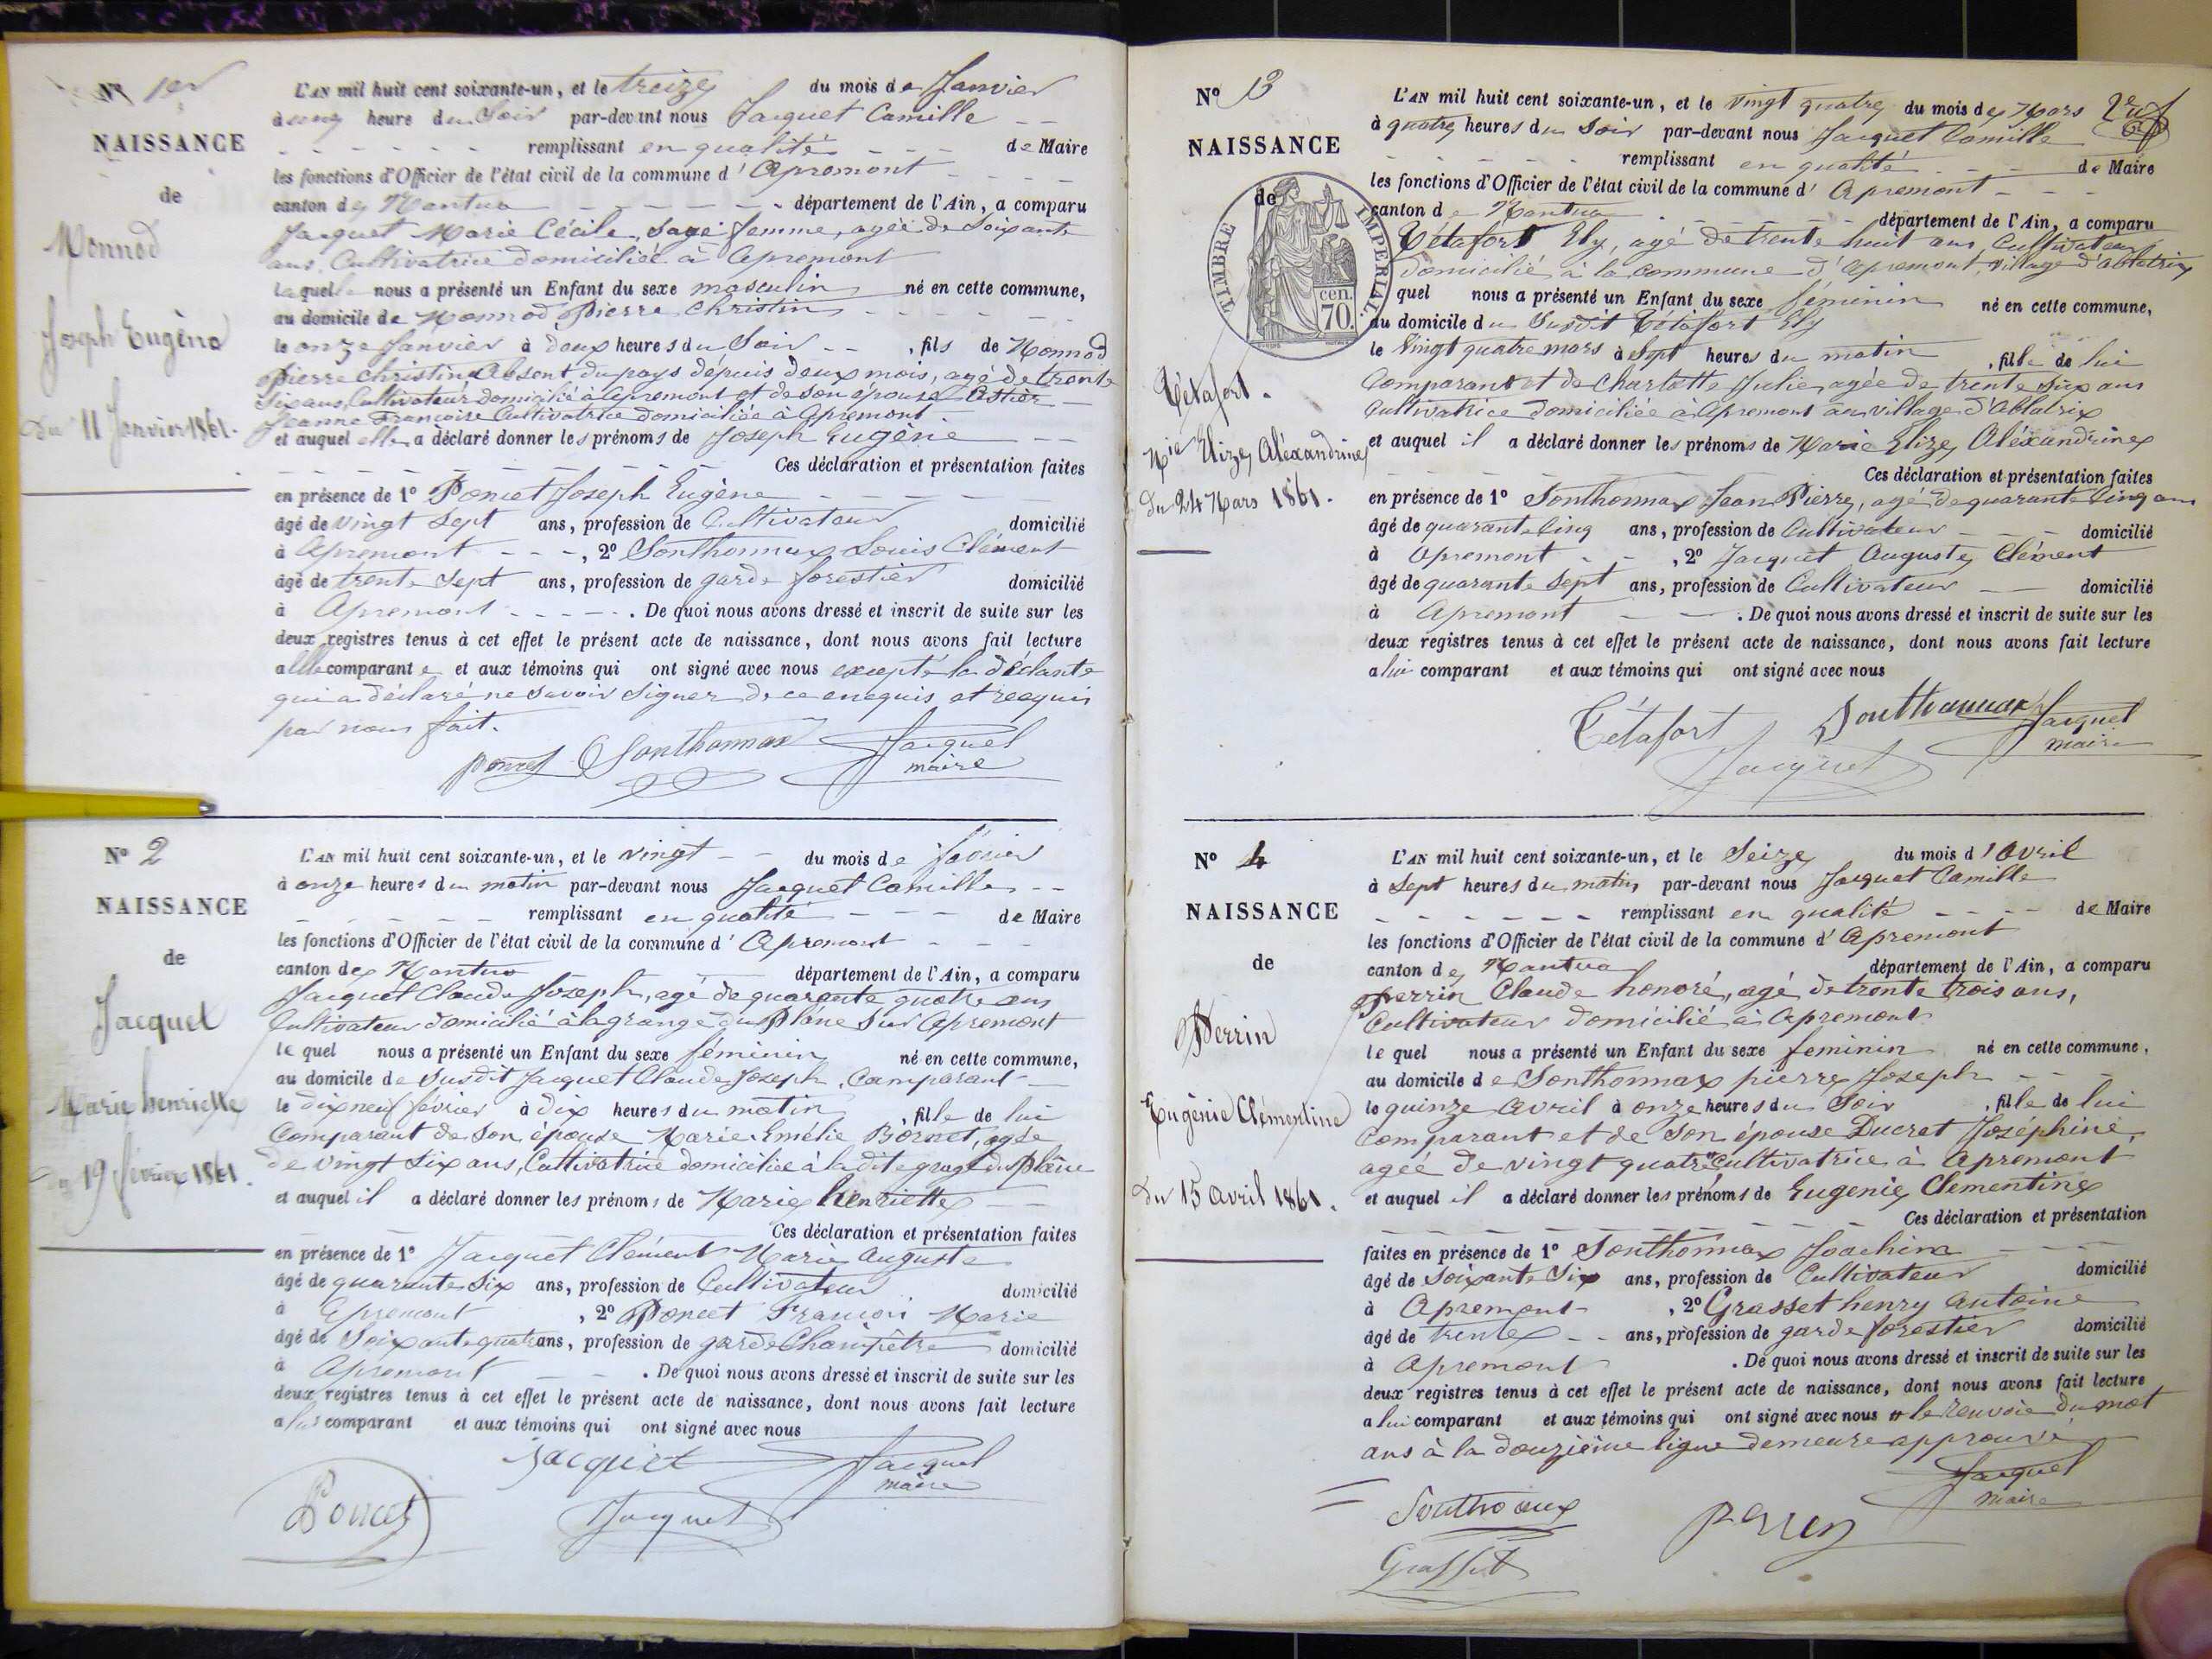 Nº 1er
NAISSANCE
de
Monnod
Joseph Eugène
Du 11 Janvier 1861.
L'AN mil huit cent soixante-un, et le treize du mois de Janvier
à cinq heure du Soir par-devant nous Jacquet Camille
remplissant en qualité de Maire
les fonctions d'Officier de l'état civil de la commune d'Apremont
canton de Nantua département de l'Ain, a comparu
Jacquet Marie Cécile, Sage femme, agée de Soixante
ans, Cultivatrice domiciliée à Apremont
laquelle nous a présenté un Enfant du sexe masculin né en cette commune,
au domicile de Monnod Pierre Christin
le onze Janvier à deux heures du Soir, fils de Monnod
Pierre Christin Absent du pays depuis deux mois, agé de trente
Six ans, Cultivateur domicilié à Apremont et de son épouse
Jeanne Françoise Cultivatrice domiciliée à Apremont.
et auquel elle a déclaré donner les prénoms de Joseph Eugène
Ces déclaration et présentation faites
en présence de 1º Poncet Joseph Eugène
âgé de vingt Sept ans, profession de Cultivateur domicilié
à Apremont, 2º Sonthonnax Louis Clément
âgé de trente Sept ans, profession de garde forestier domicilié
à Apremont. De quoi nous avons dressé et inscrit de suite sur les
deux registres tenus à cet effet le présent acte de naissance, dont nous avons fait lecture
a elle comparante et aux témoins qui ont signé avec nous excepté la déclante
qui a déclaré ne Savoir Signer de ce enequis et reequis
par nous fait.
Poncet Sonthonnax Jacquet
maire
Nº 2
NAISSANCE
de
Jacquet
Marie henriette
19 février 1861.
L'AN mil huit cent soixante-un, et le vingt du mois de février
à onze heures du matin par-devant nous Jacquet Camille
remplissant en qualité de Maire
les fonctions d'Officier de l'état civil de la commune d'Apremont
canton de Nantua département de l'Ain, a comparu
Jacquet Claude Joseph, agé de quarante quatre ans
Cultivateur domicilié à la grange du Plâne Sur Apremont
le quel nous a présenté un Enfant du sexe féminin né en cette commune,
au domicile de Susdit Jacquet Claude Joseph, Comparant
le dix neuf février à dix heures du matin, fille de lui
Comparant de Son épouse Marie Emélie Bornet, agée
de vingt Six ans, Cultivatrice domiciliée à la dite grage du Plâne
et auquel il a déclaré donner les prénoms de Marie henriette
Ces déclaration et présentation faites
en présence de 1º Jacquet Clément Marie Auguste
âgé de quarante Six ans, profession de Cultivateur domicilié
à Apremont, 2º Poncet François Marie
âgé de Soixante quatre ans, profession de garde Champêtre domicilié
à Apremont. De quoi nous avons dressé et inscrit de suite sur les
deux registres tenus à cet effet le présent acte de naissance, dont nous avons fait lecture
a lui comparant et aux témoins qui ont signé avec nous
Jacquet Jacquet
maire
Poncet Jacquet
Nº 3
NAISSANCE
de
TIMBRE IMPERIAL.
cen.
70.
Tétafort.
Mie Elize Aléxandrine
Du 24 Mars 1861.
L'AN mil huit cent soixante-un, et le vingt quatre du mois de Mars
à quatre heures du Soir par-devant nous Jacquet Camille
remplissant en qualité de Maire
les fonctions d'Officier de l'état civil de la commune d'Apremont
canton de Nantua département de l'Ain, a comparu
Tétafort Ely, agé de trente huit ans, Cultivateur
domicilié à la commune d'Apremont, village d'Ablatrix
quel nous a présenté un Enfant du sexe féminin né en cette commune,
au domicile du Susdit Tétafort Ely
le Vingt quatre mars à Sept heures du matin, fille de lui
Comparant et de Charlotte Julie, agée de trente Six ans
Cultivatrice domiciliée à Apremont au village d'Ablatrix
et auquel il a déclaré donner les prénoms de Marie Elize, Aléxandrine
Ces déclaration et présentation faites
en présence de 1º Sonthonnax Jean Pierre, agé de quarante Cinq ans
âgé de quarante Cinq ans, profession de Cultivateur domicilié
à Apremont, 2º Jacquet Auguste Clément
âgé de quarante Sept ans, profession de Cultivateur domicilié
à Apremont. De quoi nous avons dressé et inscrit de suite sur les
deux registres tenus à cet effet le présent acte de naissance, dont nous avons fait lecture
a lui comparant et aux témoins qui ont signé avec nous
Tétafort Sonthonnax Jacquet
maire
Jacquet
Nº 4
NAISSANCE
de
Perrin
Eugènie Clémentine
Du 15 avril 1861.
L'AN mil huit cent soixante-un, et le Seize du mois d'Avril
à Sept heures du matin par-devant nous Jacquet Camille
remplissant en qualité de Maire
les fonctions d'Officier de l'état civil de la commune d'Apremont
canton de Nantua département de l'Ain, a comparu
Perrin Claude honoré, agé de trente trois ans,
Cultivateur domicilié à Apremont
le quel nous a présenté un Enfant du sexe feminin né en cette commune,
au domicile de Sonthonnax pierre Joseph
le quinze Avril à onze heures du Soir, fille de lui
Comparant et de Son épouse Ducret Joséphine,
agée de vingt quatre Cultivatrice à Apremont
et auquel il a déclaré donner les prénoms de Eugenie Clementine
Ces déclaration et présentation
faites en présence de 1º Sonthonnax Joachim
âgé de Soixante Six ans, profession de Cultivateur domicilié
à Apremont, 2º Grasset henry Antoine
âgé de trente ans, profession de garde forestier domicilié
à Apremont. De quoi nous avons dressé et inscrit de suite sur les
deux registres tenus à cet effet le présent acte de naissance, dont nous avons fait lecture
a lui comparant et aux témoins qui ont signé avec nous # le renvoie du mot
ans à la douzième ligne demeure approuvé
Jacquet
maire
Perrin
Grasset